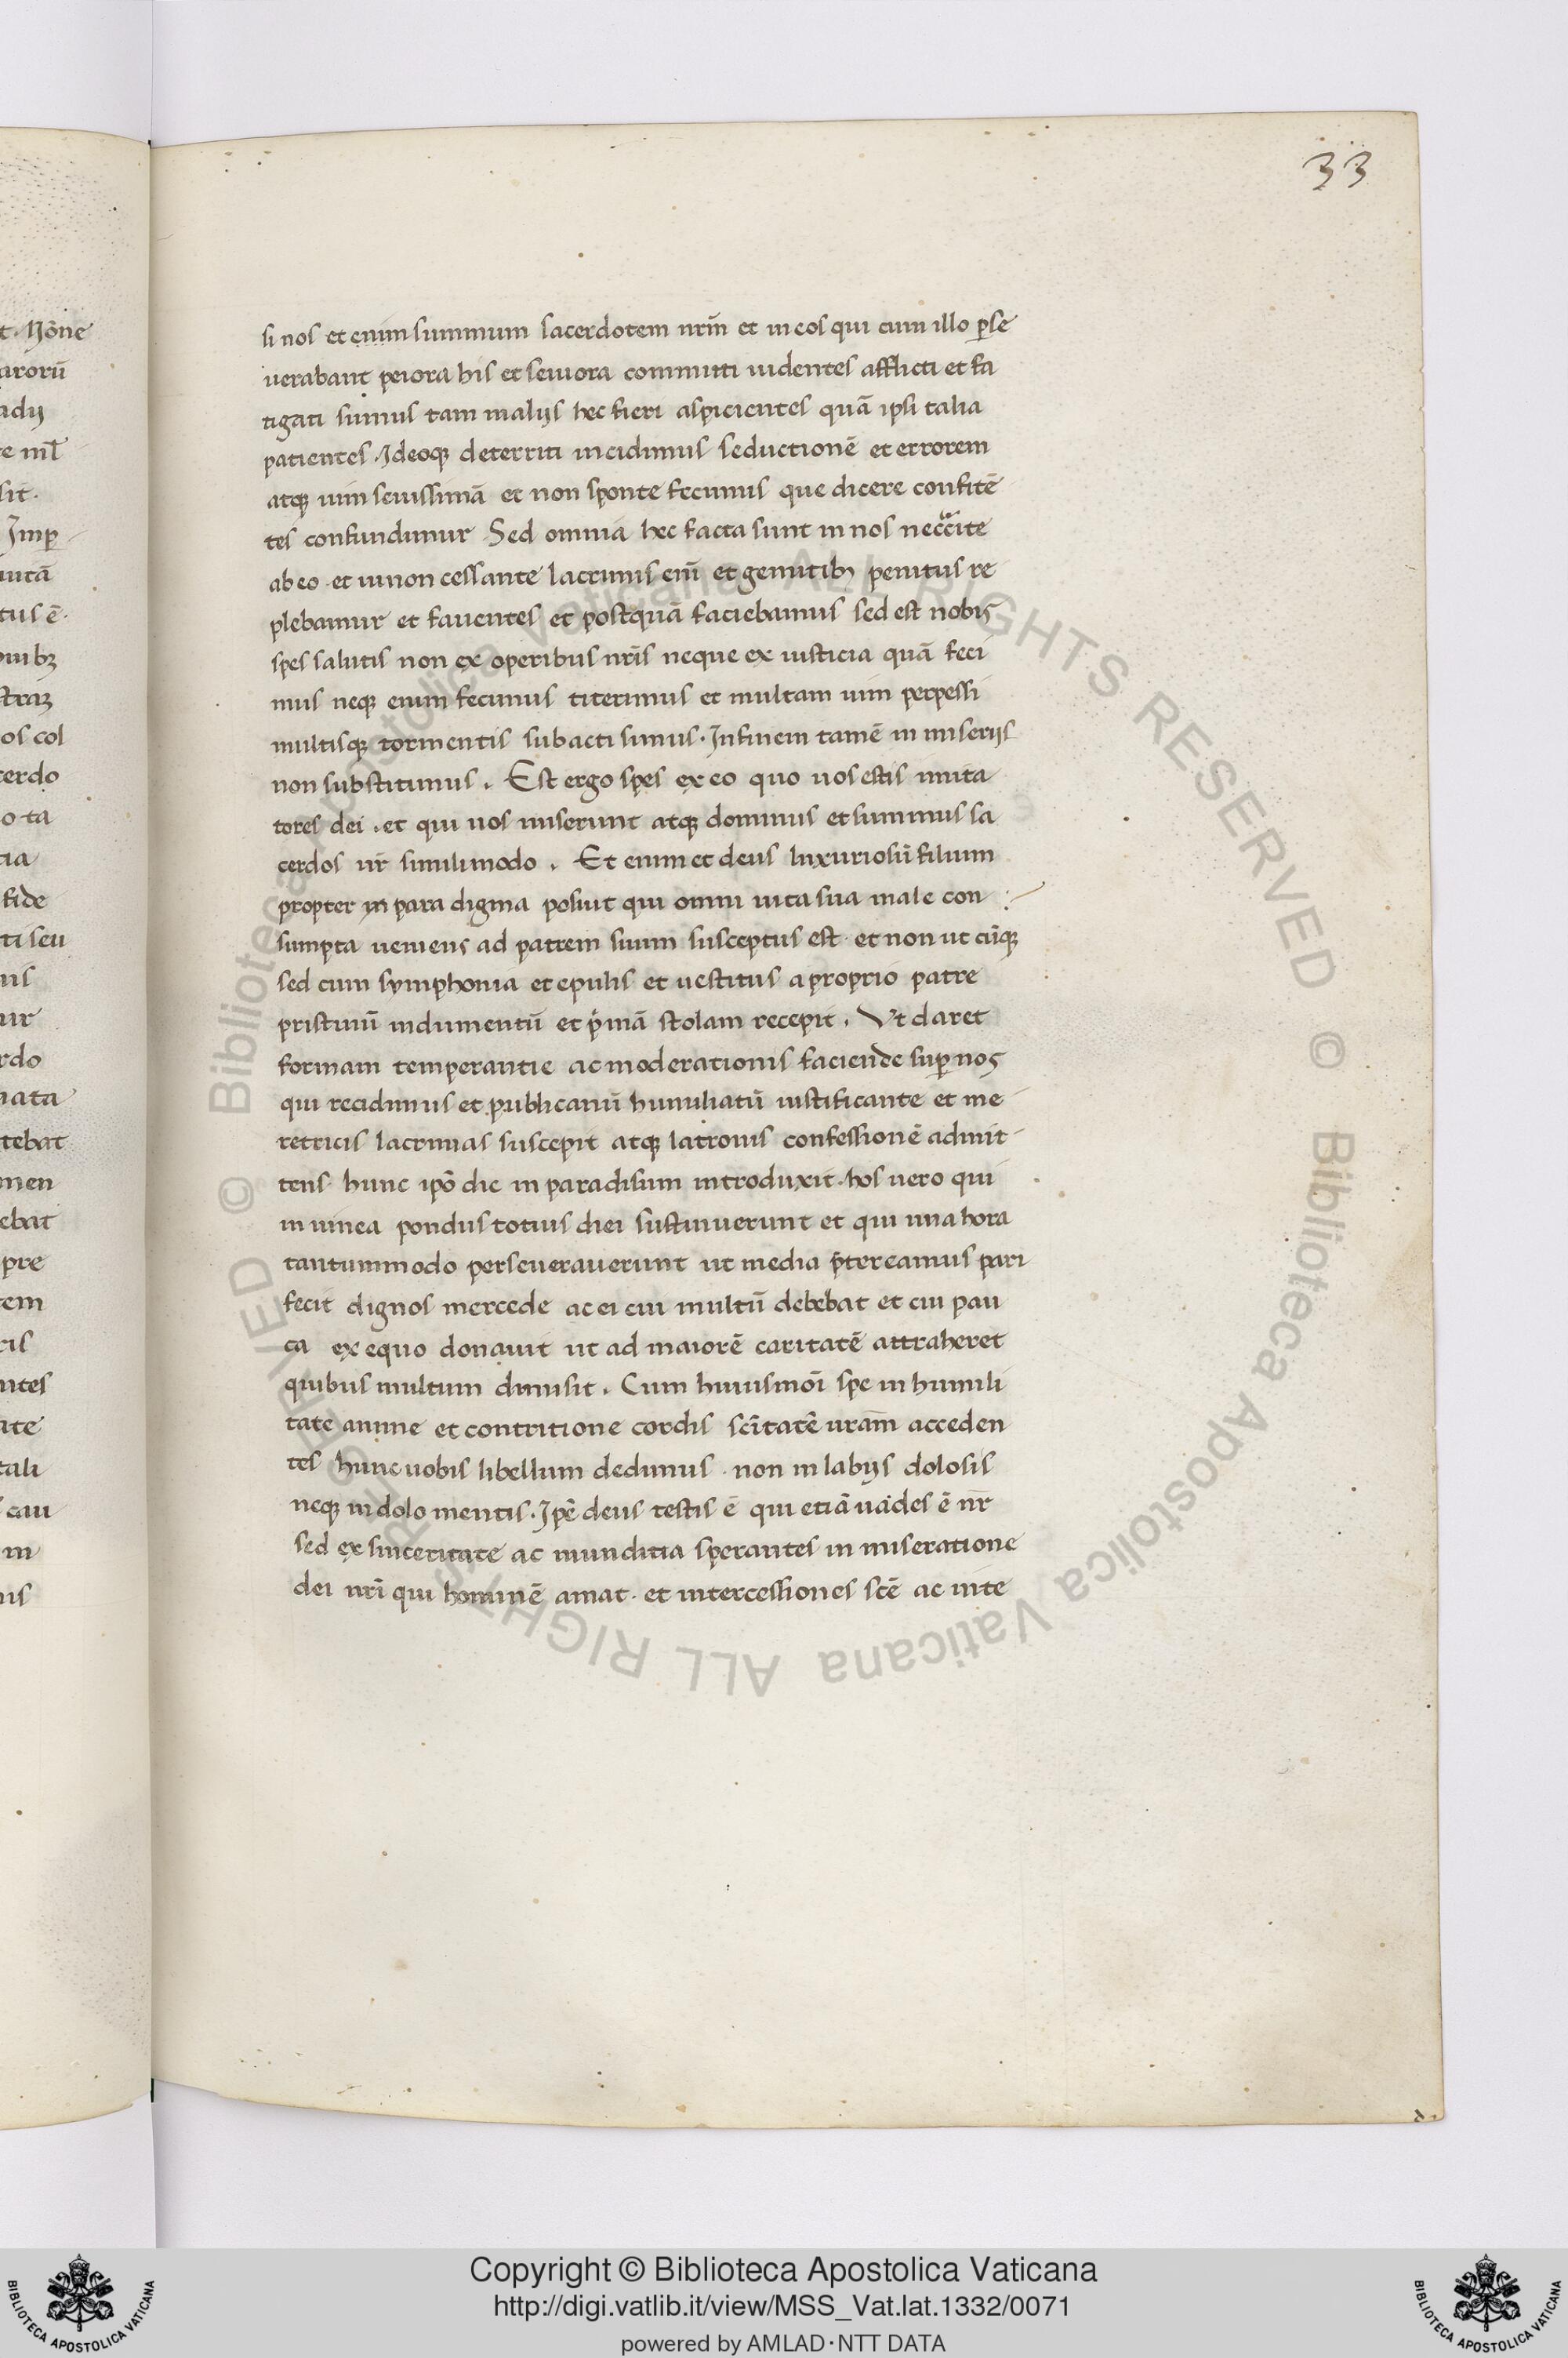 33
t. Nōne
arorū
adij
te ml̄
sit.
Imꝑ
uitā
tus ē.
uibꝫ
straꝫ
os col
cerdo
o ta
tia
fide
ti seu
nis
ur
rdo
nata
tebat
men
ebat
pre
tem
ris
ntes
ate
tali
cau
m
us
si nos et enim summum sacerdotem nrm̄ et in eos qui cum illo ꝑse
uerabant peiora his et seuiora committi uidentes afflicti et fa
tigati sumus tam malijs hec fieri aspicientes quā ipsi talia
patientes. Ideoqꝫ deterriti incidimus seductionē et errorem
atqꝫ uim seuissimā et non sponte fecimus que dicere confitē
tes confundimur. Sed omnia hec facta sunt in nos neccite
ab eo et iuinon cessante lacrimis em̄ et gemitibꝫ penitus re
plebamur et fauentes et postquā faciebamus sed est nobis
spes salutis non ex operibus nrīs neque ex iusticia quā feci
mus neqꝫ enim fecimus titerimus et multam uim perpessi
multisqꝫ tormentis subacti simus. Infinem tamē in miserijs
non substitimus. Est ergo spes ex eo quo uos estis imita
tores dei. et qui uos miserunt atqꝫ dominus et summus sa
cerdos ur̄ simili modo. Et enim et deus luxuriosū filium
propter in para digma posuit qui omni uita sua male con
sumpta ueniens ad patrem suum susceptus est. et non ut cūqꝫ
sed cum symphonia et epulis et uestitus a proprio patre
pristinū indumentū et pⁱmā stolam recepit. Vt daret
formam temperantie ac moderationis faciende suꝑ nos
qui recidimus et publicanū humiliatū iustificante et me
retricis lacrimas suscepit atqꝫ latronis confessionē admit
tens hunc ipō die in paradisum introduxit. hos uero qui
in uinea pondus totius diei sustinuerunt et qui una hora
tantummodo perseuerauerunt ut media p̄tereamus pari
fecit dignos mercede ac ei cui multū debebat et cui pau
ca ex equo donauit ut ad maiorē caritatē attraheret
quibus multum dimisit. Cum huiusmōi spe in humili
tate anime et contritione cordis scītatē uram̄ acceden
tes hunc uobis libellum dedimus. non in labijs dolosis
neqꝫ in dolo mentis. Ipē deus testis ē qui etiā uades ē nr̄
sed ex sinceritate ac munditia sperantes in miseratione
dei nrī qui hominē amat. et intercessiones scē ac inte
Copyright © Biblioteca Apostolica Vaticana
http://digi.vatlib.it/view/MSS_Vat.lat.1332/0071
powered by AMLAD·NTT DATA
© Biblioteca Apostolica Vaticana ALL RIGHTS RESERVED © Biblioteca Apostolica Vaticana ALL RIGHTS RESERVED
BIBLIOTECA APOSTOLICA VATICANA
BIBLIOTECA APOSTOLICA VATICANA